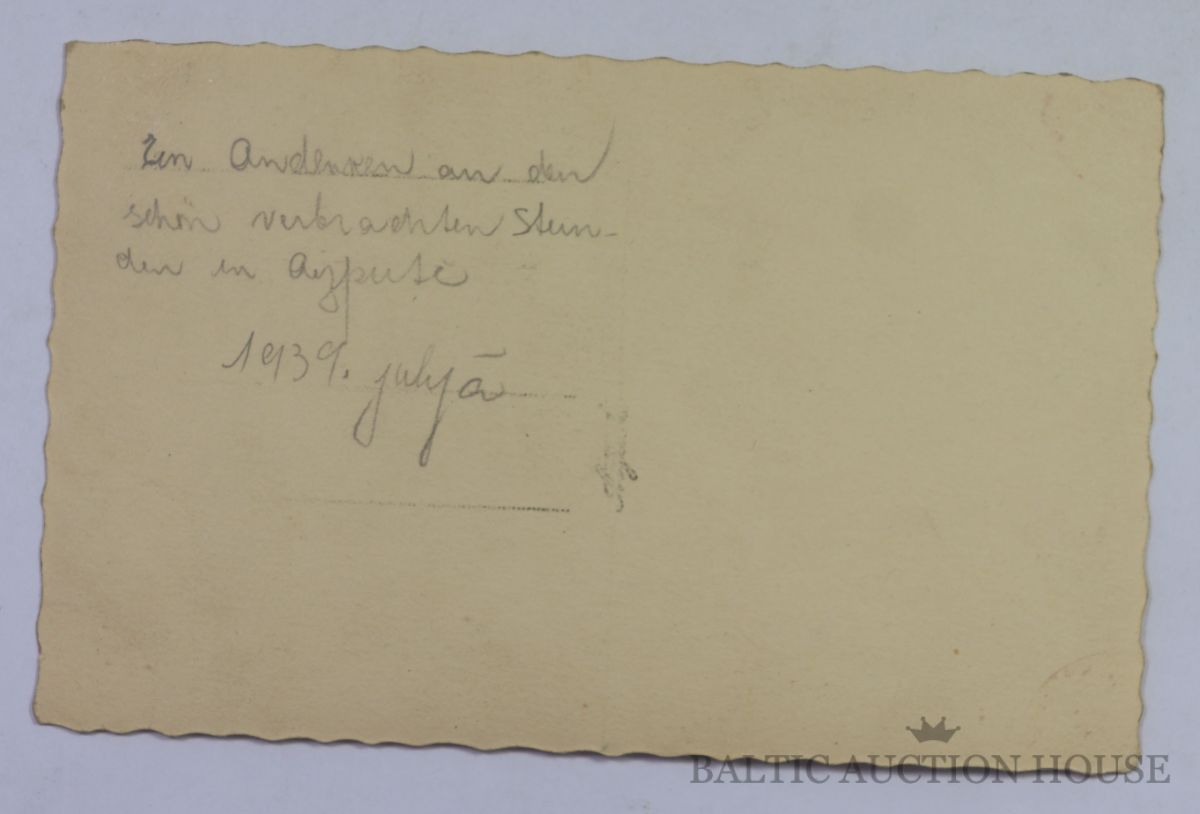 Zun Andenken an den
schön verbrachten Stun-
den in Aizputē
1939. julijā
BALTIC AUCTION HOUSE